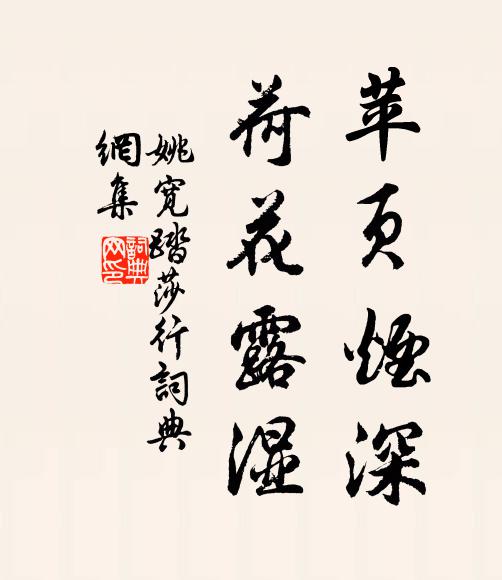 苹页烟深
荷花露湿
姚宽踏莎行词典
網集
詞典
网印